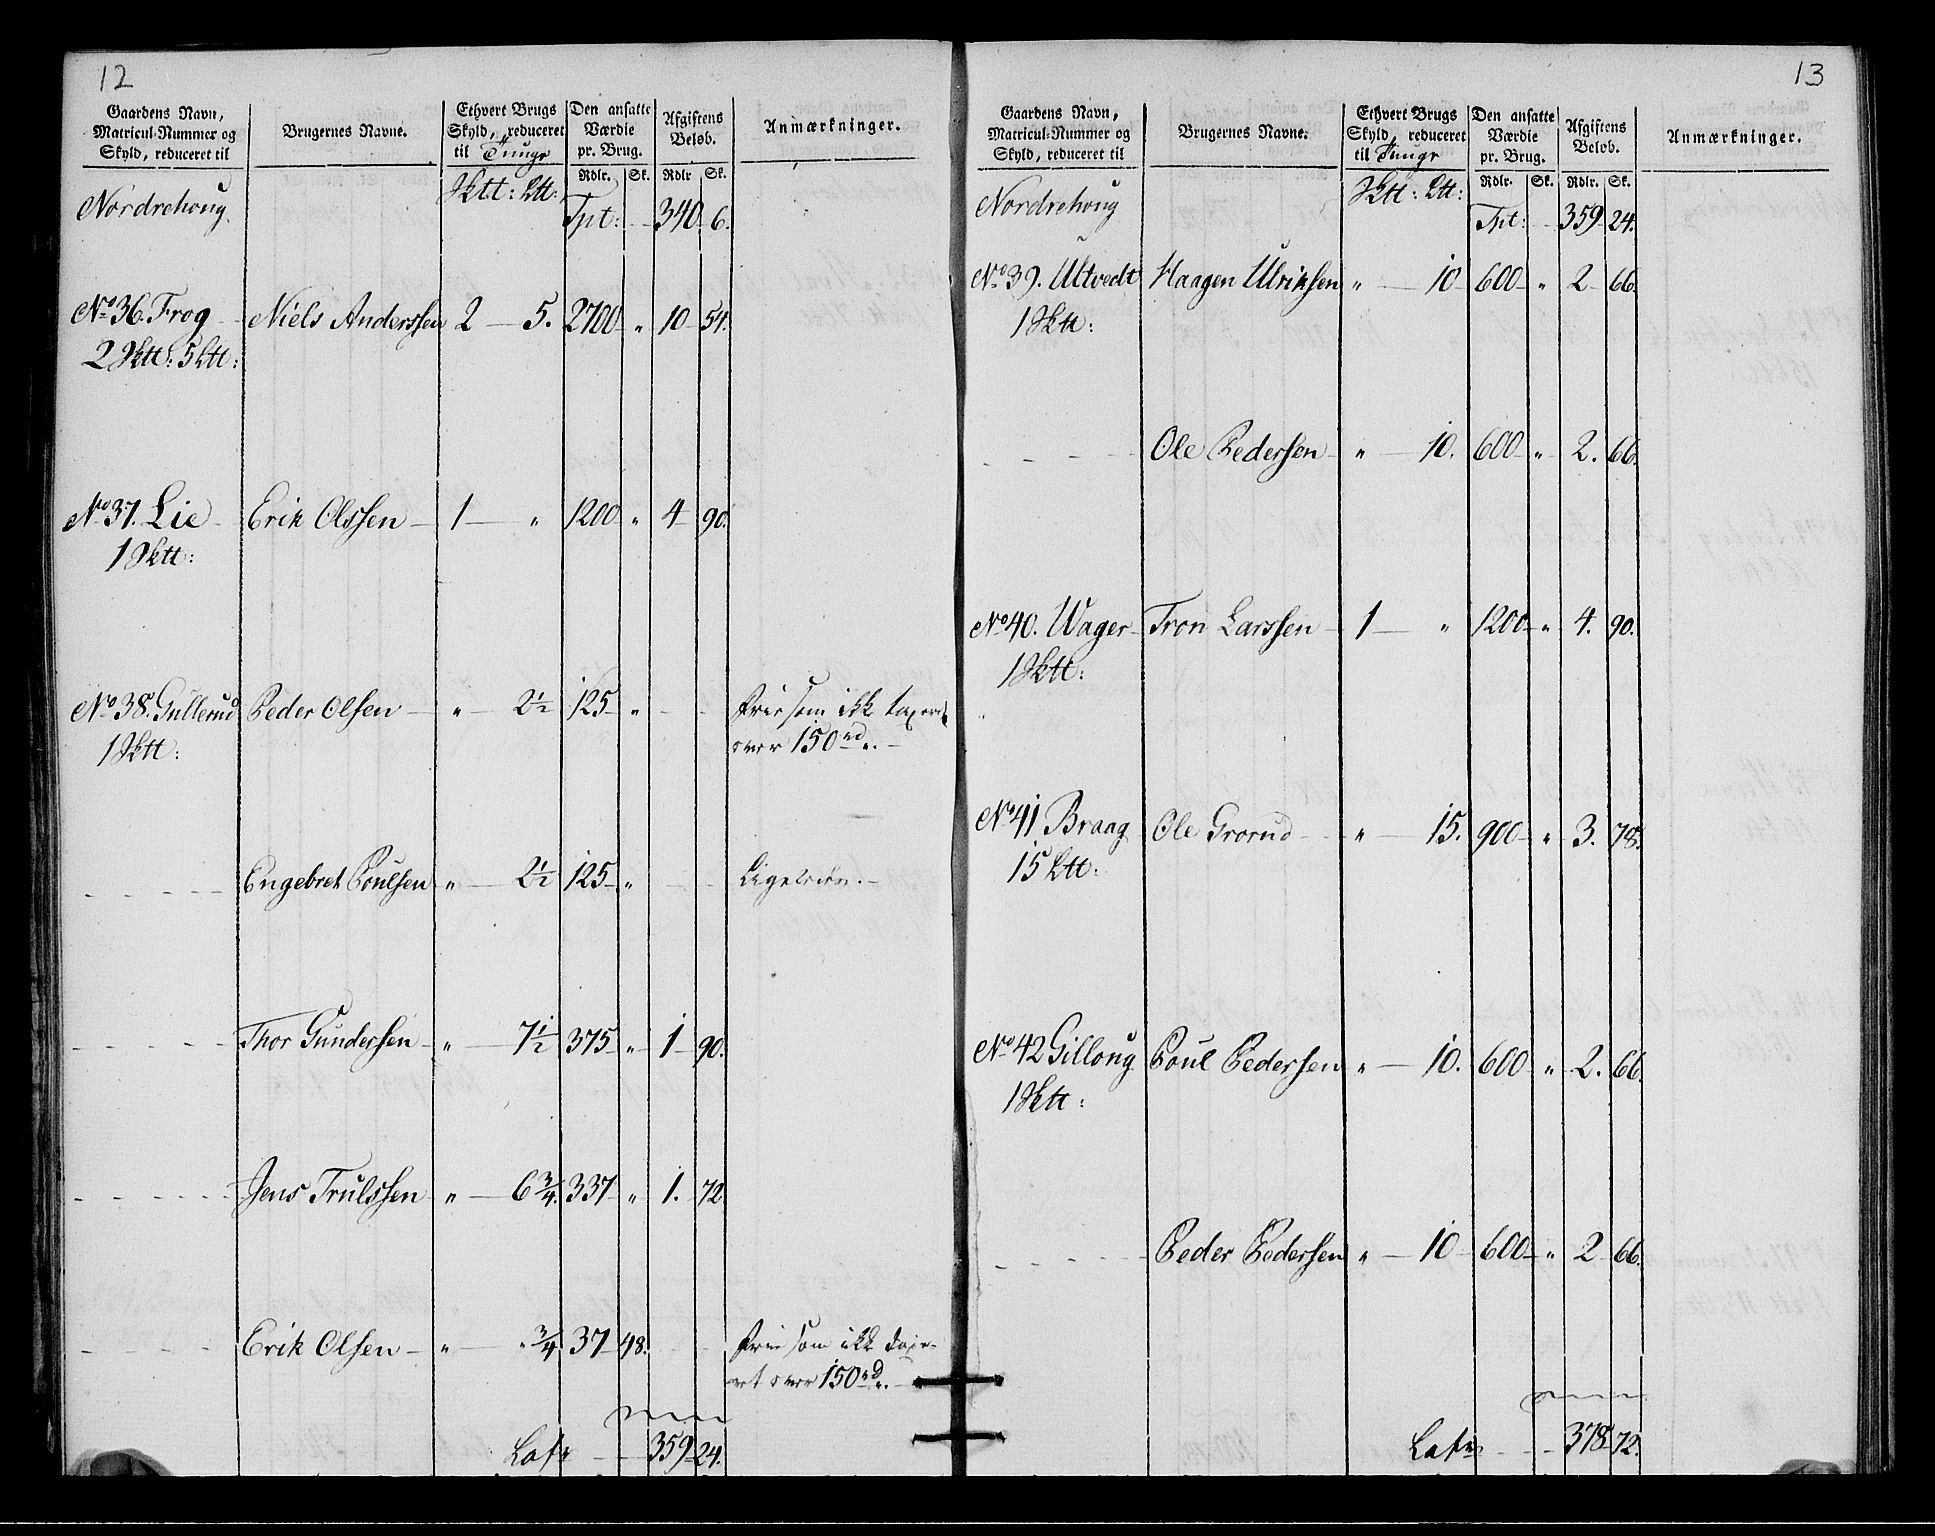 12
Gaardens Navn, Matricul-Nummer og Skyld, reduceret til | Brugernes Navne. | Ethvert Brugs Skyld, reduceret til Tunge | Den ansatte Værdie pr. Brug. | Afgiftens Beløb. | Anmærkninger.
Rdlr. Sk. Rdlr Sk.
Nordrehoug Sktt: Ltt: Tpt: 340 6.
No 36. Frog Niels Anderssen 2 5. 2700 " 10 54.
2 Sktt: 5 Ltt:
No 37. Lie Erik Olssen 1 " 1200 " 4 90.
1 Sktt:
No 38. Gullerud Peder Olsen " 2½ 125 " Frie som ikke taxeret
1 Sktt: over 150 rd.
Engebret Poulsen " 2½ 125 " Ligeledes.
Thor Gundersen " 7½ 375 " 1 90.
Jens Trulssen " 6¾. 337 " 1. 72
Erik Olsen " " ¾ 37 48. Frie som ikke taxe-
ret over 150 rd.
Lat. 359 24.
13
Gaardens Navn, Matricul-Nummer og Skyld, reduceret til | Brugernes Navne. | Ethvert Brugs Skyld, reduceret til Tunge | Den ansatte Værdie pr. Brug. | Afgiftens Beløb. | Anmærkninger.
Rdlr. Sk. Rdlr. Sk.
Nordrehoug Sktt: Ltt: Tpt: 359 24.
No 39. Utvedt Haagen Ulriksen " 10 600 " 2 66.
1 Sktt:
Ole Pedersen " 10. 600 " 2. 66.
No 40. Wager Tron Larssen 1 " 1200 " 4. 90.
1 Sktt:
No 41 Braag Ole Grorud " 15. 900 " 3. 78.
15 Ltt:
No 42 Gilloug Poul Pedersen " 10. 600 " 2. 66.
1 Sktt:
Peder Pedersen " 10 600 " 2 66.
Lat. 378 72.